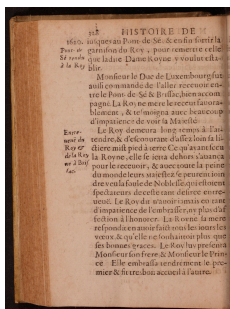 318 HISTOIRE DE
1620. jusques au Pont de Sé, & en fit sortir la
Pont de garnison du Roy, pour remettre celle
Sé rendu que ladite Dame Royne y voulut esta-
à la Roy blir.
Monsieur le Duc de Luxembourg fut
aussi commandé de l'aller recevoir en-
tre le Pont de Sé & Brissac, bien accom-
pagné. La Royne mere le receut favora-
blement, & tesmoigna avec beaucoup
d'impatience de voir sa Majesté.
Entre- Le Roy demeura long temps à l'at-
veuë tendre, & s'ennuyant
du Roy
& ctiere mist pied à terre. Ce qu'ayant sceu
de la Roy la Royne, elle se jetta dehors
ne à Brif pour le recevoir, & avec toute la joye
sac. du monde leurs majestez se peurent join
dre en la foule de Noblesse, qui estoient
spectateurs de ceste tant desirée entre-
veuë. Le Roy n'avoit jamais eu tant
d'impatience de l'embrasser, ny plus d'af
fection à l'honorer. La Royne sa mere
respondit en avoir faict tous les jours les
vœux, & qu'elle ne souhaitoit plus que
ses bonnes graces. Le Roy luy presenta
Monsieur son frere, & Monsieur le Prin
ce. Elle embrassa tendrement le pre-
mier, & fit tresbon accueil à l'autre.